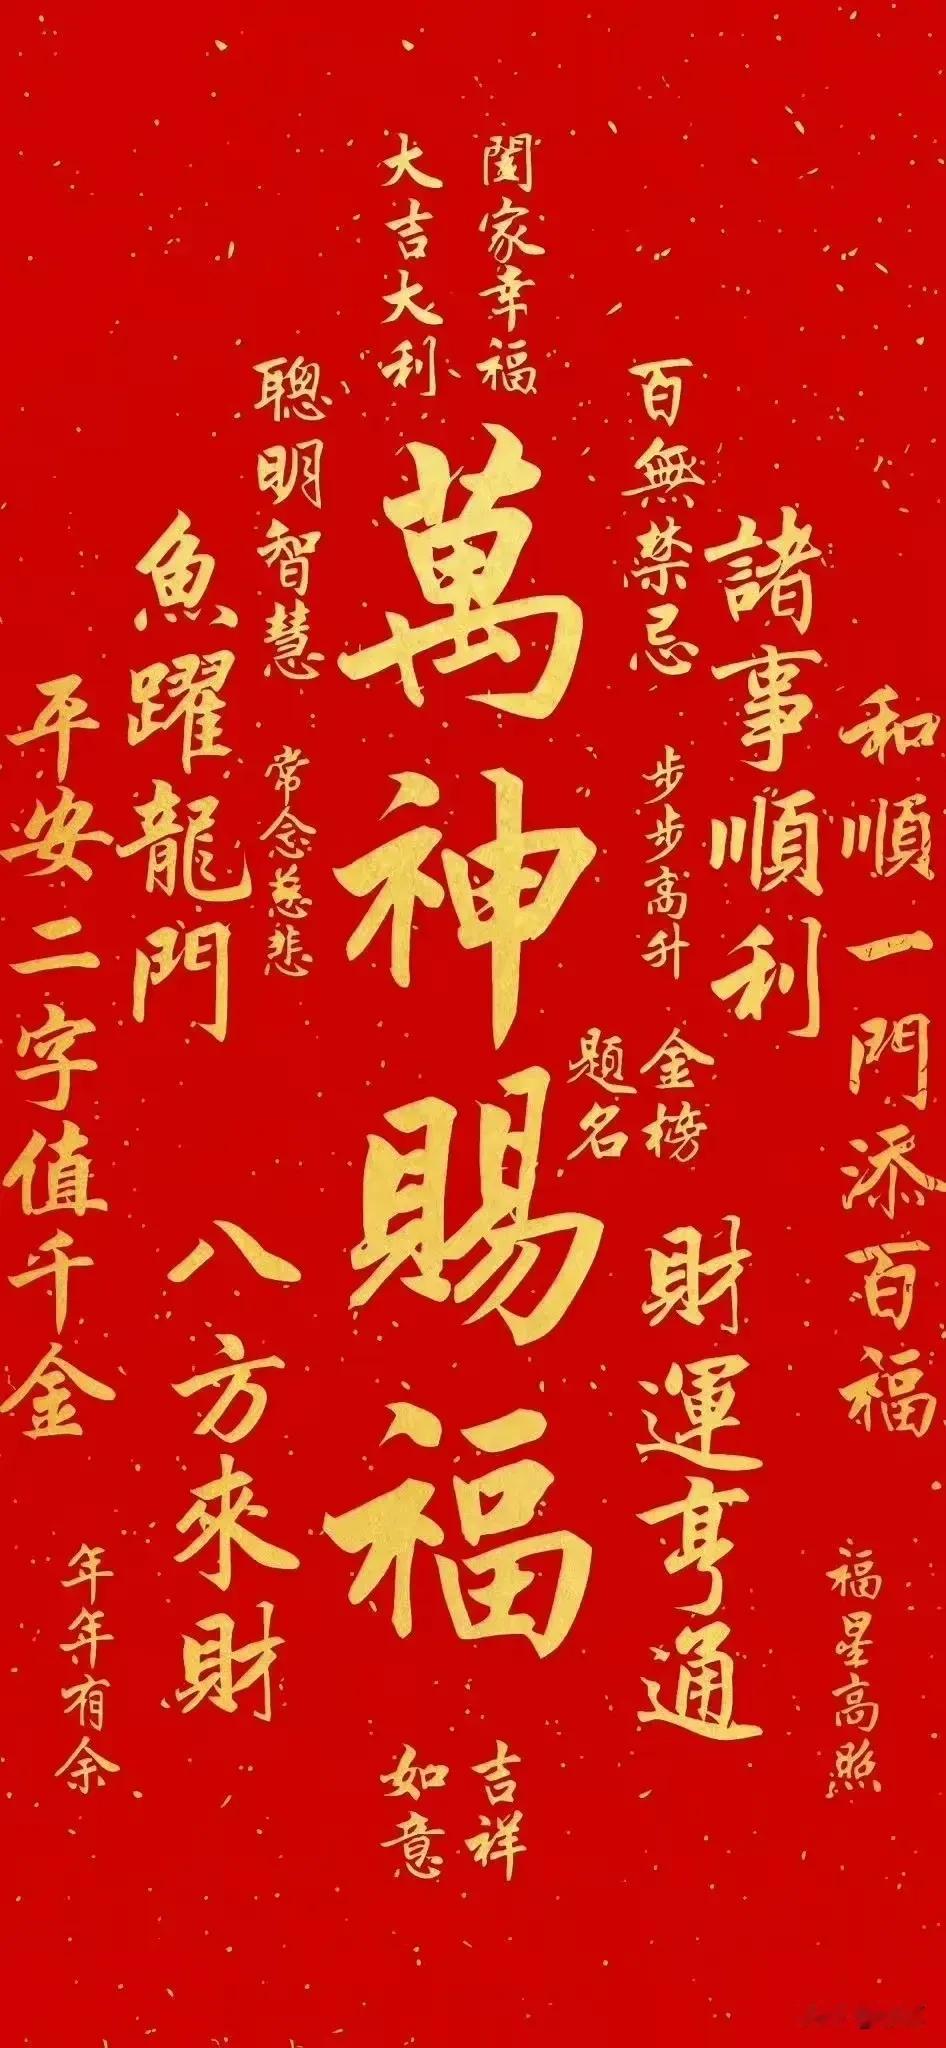 闔家幸福
大吉大利
萬神賜福
百無禁忌
聰明智慧
諸事順利
魚躍龍門
和順一門添百福
平安二字值千金
步步高升
常念慈悲
金榜
題名
財運亨通
八方來財
福星高照
年年有余
吉祥
如意